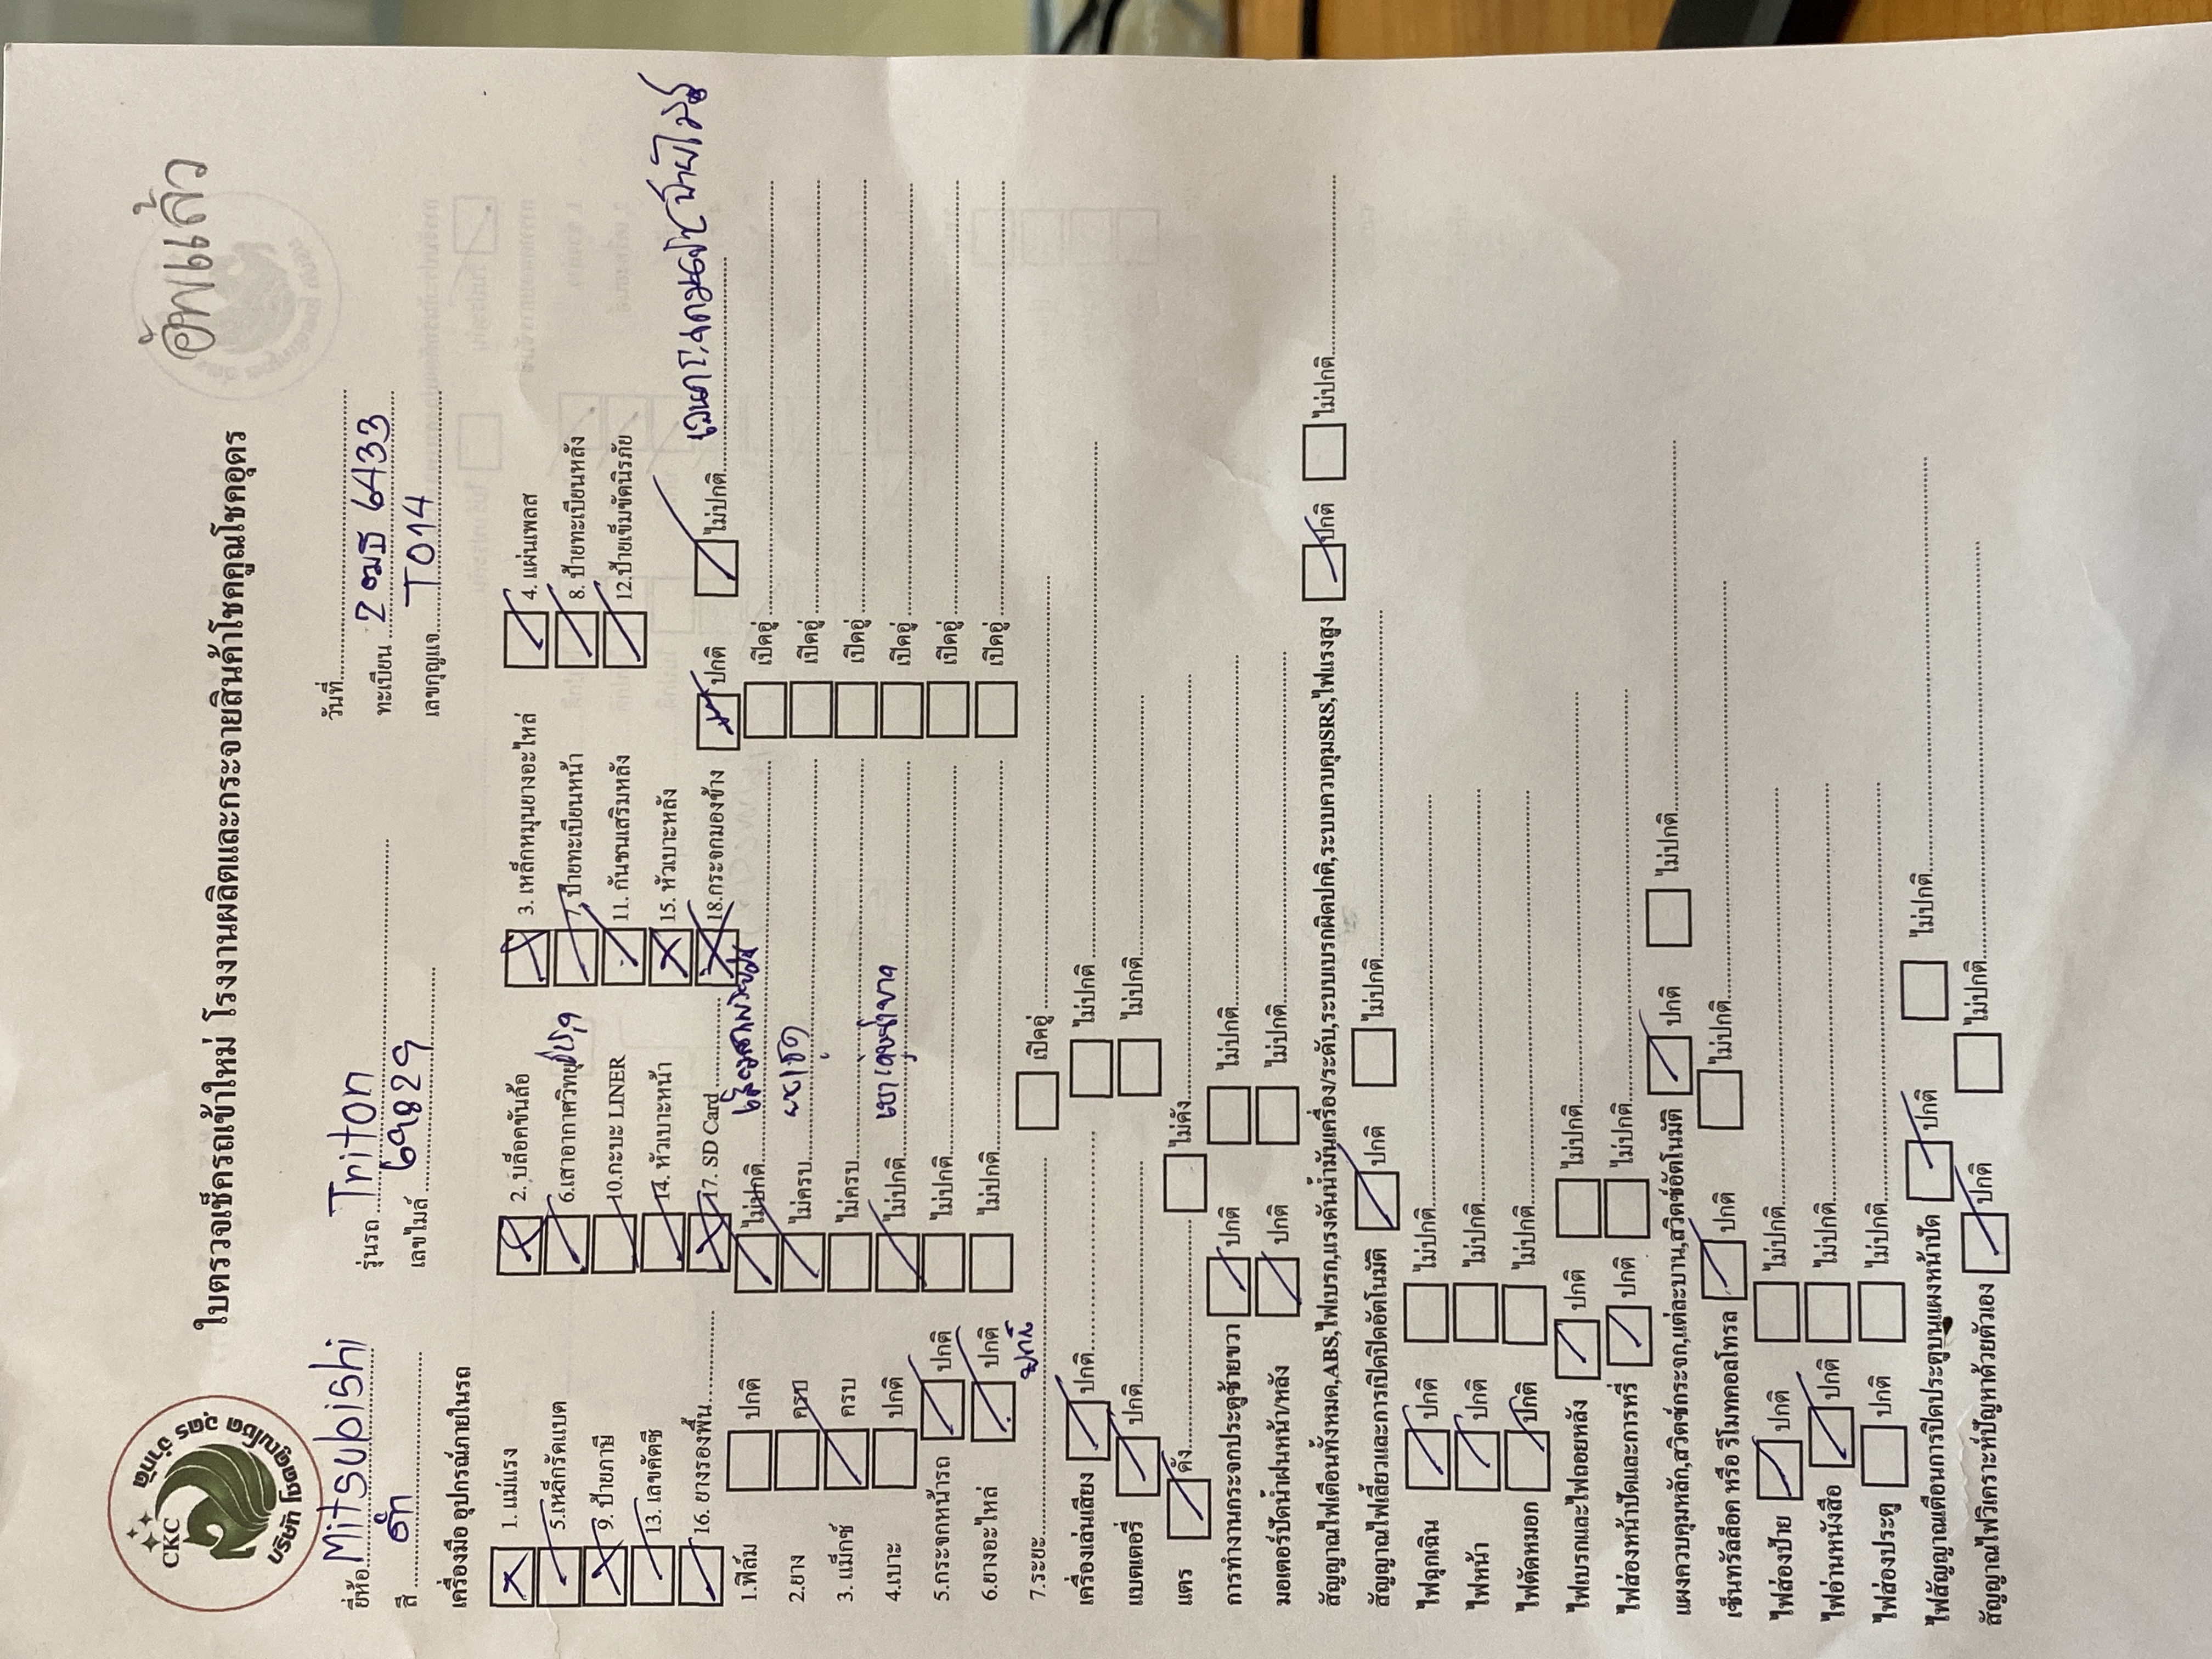 อัพแล้ว
CKC
บริษัท โชคคูณโชค อุดร จำกัด
ใบตรวจเช็ครถเข้าใหม่ โรงงานผลิตและกระจายสินค้าโชคคูณโชคอุดร
ยี่ห้อ Mitsubishi รุ่นรถ Triton วันที่
สี ดำ เลขไมล์ 69829 ทะเบียน 2ฒธ 6433
เลขกุญแจ T014
เครื่องมือ อุปกรณ์ภายในรถ
1. แม่แรง 2. บล็อคขันล้อ 3. เหล็กหมุนยางอะไหล่ 4. แผ่นเพลส
5.เหล็กรัดแบต 6.เสาอากาศวิทยุ 7. ป้ายทะเบียนหน้า 8. ป้ายทะเบียนหลัง
9. ป้ายภาษี 10.กะบะ LINER 11. กันชนเสริมหลัง 12.ป้ายเข็มขัดนิรภัย
13. เลขคัตซี 14. หัวเบาะหน้า 15. หัวเบาะหลัง
16. ยางรองพื้น 17. SD Card 18.กระจกมองข้าง ปกติ ไม่ปกติ
1.ฟิล์ม ปกติ ไม่ปกติ เปิดอยู่
2.ยาง ครบ ไม่ครบ เปิดอยู่
3. แม็กซ์ ครบ ไม่ครบ เปิดอยู่
4.เบาะ ปกติ ไม่ปกติ เปิดอยู่
5.กระจกหน้ารถ ปกติ ไม่ปกติ เปิดอยู่
6.ยางอะไหล่ ปกติ ไม่ปกติ เปิดอยู่
7.ระยะ เปิดอยู่
เครื่องเล่นเสียง ปกติ ไม่ปกติ
แบตเตอรี่ ปกติ ไม่ปกติ
แตร ดัง ไม่ดัง
การทำงานกระจกประตูซ้ายขวา ปกติ ไม่ปกติ
มอเตอร์ปัดน้ำฝนหน้า/หลัง ปกติ ไม่ปกติ
สัญญาณไฟเตือนทั้งหมด,ABS,ไฟเบรก,แรงดันน้ำมันเครื่อง/ระดับ,ระบบเบรกผิดปกติ,ระบบควบคุมSRS,ไฟแรงสูง ปกติ ไม่ปกติ
สัญญาณไฟเลี้ยวและการเปิดปิดอัตโนมัติ ปกติ ไม่ปกติ
ไฟฉุกเฉิน ปกติ ไม่ปกติ
ไฟหน้า ปกติ ไม่ปกติ
ไฟตัดหมอก ปกติ ไม่ปกติ
ไฟเบรกและไฟถอยหลัง ปกติ ไม่ปกติ
ไฟส่องหน้าปัดและการหรี่ ปกติ ไม่ปกติ
แผงควบคุมหลัก,สวิตซ์กระจก,แต่ละบาน,สวิตซ์อัตโนมัติ ปกติ ไม่ปกติ
เซ็นทรัลล็อค หรือ รีโมทคอลโทรล ปกติ ไม่ปกติ
ไฟส่องป้าย ปกติ ไม่ปกติ
ไฟอ่านหนังสือ ปกติ ไม่ปกติ
ไฟส่องประตู ปกติ ไม่ปกติ
ไฟสัญญาณเตือนการปิดประตูบนแผงหน้าปัด ปกติ ไม่ปกติ
สัญญาณไฟวิเคราะห์ปัญหาด้วยตัวเอง ปกติ ไม่ปกติ